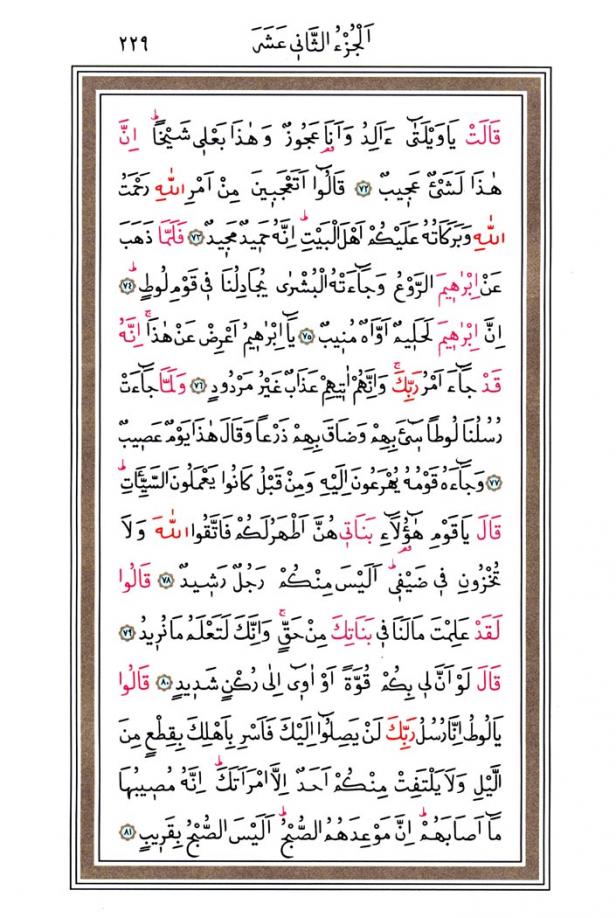 اَلْجُزْءُ الثَّانِي عَشَرَ ٢٢٩
قَالَتْ يَا وَيْلَتٰٓى ءَاَلِدُ وَاَنَا۬ عَجُوزٌ وَهٰذَا بَعْلِي شَيْخاًۜ اِنَّ
هٰذَا لَشَيْءٌ عَجِيبٌ ﴿٧٢﴾ قَالُٓوا اَتَعْجَبِينَ مِنْ اَمْرِ اللّٰهِ رَحْمَتُ
اللّٰهِ وَبَرَكَاتُهُ عَلَيْكُمْ اَهْلَ الْبَيْتِۜ اِنَّهُ حَمِيدٌ مَجِيدٌ ﴿٧٣﴾ فَلَمَّا ذَهَبَ
عَنْ اِبْرٰهِيمَ الرَّوْعُ وَجَٓاءَتْهُ الْبُشْرٰى يُجَادِلُنَا فِي قَوْمِ لُوطٍۜ ﴿٧٤﴾
اِنَّ اِبْرٰهِيمَ لَحَلِيمٌ اَوَّاهٌ مُنِيبٌ ﴿٧٥﴾ يَٓا اِبْرٰهِيمُ اَعْرِضْ عَنْ هٰذَاۚ اِنَّهُ
قَدْ جَٓاءَ اَمْرُ رَبِّكَۚ وَاِنَّهُمْ اٰتِيهِمْ عَذَابٌ غَيْرُ مَرْدُودٍ ﴿٧٦﴾ وَلَمَّا جَٓاءَتْ
رُسُلُنَا لُوطاً سِٓيءَ بِهِمْ وَضَاقَ بِهِمْ ذَرْعاً وَقَالَ هٰذَا يَوْمٌ عَصِيبٌ
﴿٧٧﴾ وَجَٓاءَهُ قَوْمُهُ يُهْرَعُونَ اِلَيْهِ وَمِنْ قَبْلُ كَانُوا يَعْمَلُونَ السَّيِّـَٔاتِۜ
قَالَ يَا قَوْمِ هٰٓؤُ۬لَٓاءِ بَنَاتِي هُنَّ اَطْهَرُ لَكُمْ فَاتَّقُوا اللّٰهَ وَلَا
تُخْزُونِ فِي ضَيْفِيۜ اَلَيْسَ مِنْكُمْ رَجُلٌ رَشِيدٌ ﴿٧٨﴾ قَالُوا
لَقَدْ عَلِمْتَ مَا لَنَا فِي بَنَاتِكَ مِنْ حَقٍّۚ وَاِنَّكَ لَتَعْلَمُ مَا نُرِيدُ ﴿٧٩﴾
قَالَ لَوْ اَنَّ لِي بِكُمْ قُوَّةً اَوْ اٰوِٓي اِلٰى رُكْنٍ شَدِيدٍ ﴿٨٠﴾ قَالُوا
يَا لُوطُ اِنَّا رُسُلُ رَبِّكَ لَنْ يَصِلُٓوا اِلَيْكَ فَاَسْرِ بِاَهْلِكَ بِقِطْعٍ مِنَ
الَّيْلِ وَلَا يَلْتَفِتْ مِنْكُمْ اَحَدٌ اِلَّا امْرَاَتَكَۜ اِنَّهُ مُصِيبُهَا
مَٓا اَصَابَهُمْۜ اِنَّ مَوْعِدَهُمُ الصُّبْحُۜ اَلَيْسَ الصُّبْحُ بِقَرِيبٍ ﴿٨١﴾